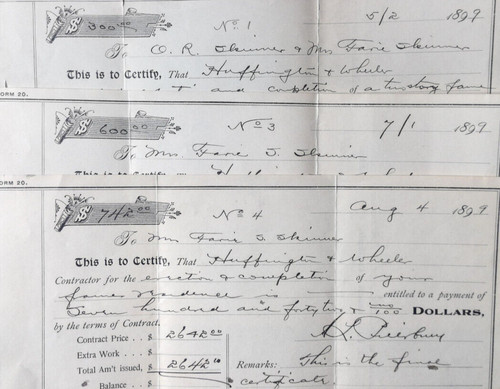 $ 300 00 No 1 5/2 1899
To O. R. Skinner & Mrs Farie Skinner
This is to Certify, That Huffington & Wheeler
and completion of a two story frame
ORM 20.
$ 600 00 No 3 7/1 1899
To Mrs. Farie S. Skinner
This is to
ORM 20.
$ 742 00 No 4 Aug 4 1899
To Mrs Farie S. Skinner
This is to Certify, That Huffington & Wheeler
Contractor for the erection & completion of your
frame residence is entitled to a payment of
Seven hundred and forty two & no/100 DOLLARS,
by the terms of Contract.
Contract Price . . $ 2642 00
Extra Work . . . $
Total Am't issued, $ 2642 00
Balance . . $
Remarks: This is the final
certificate.